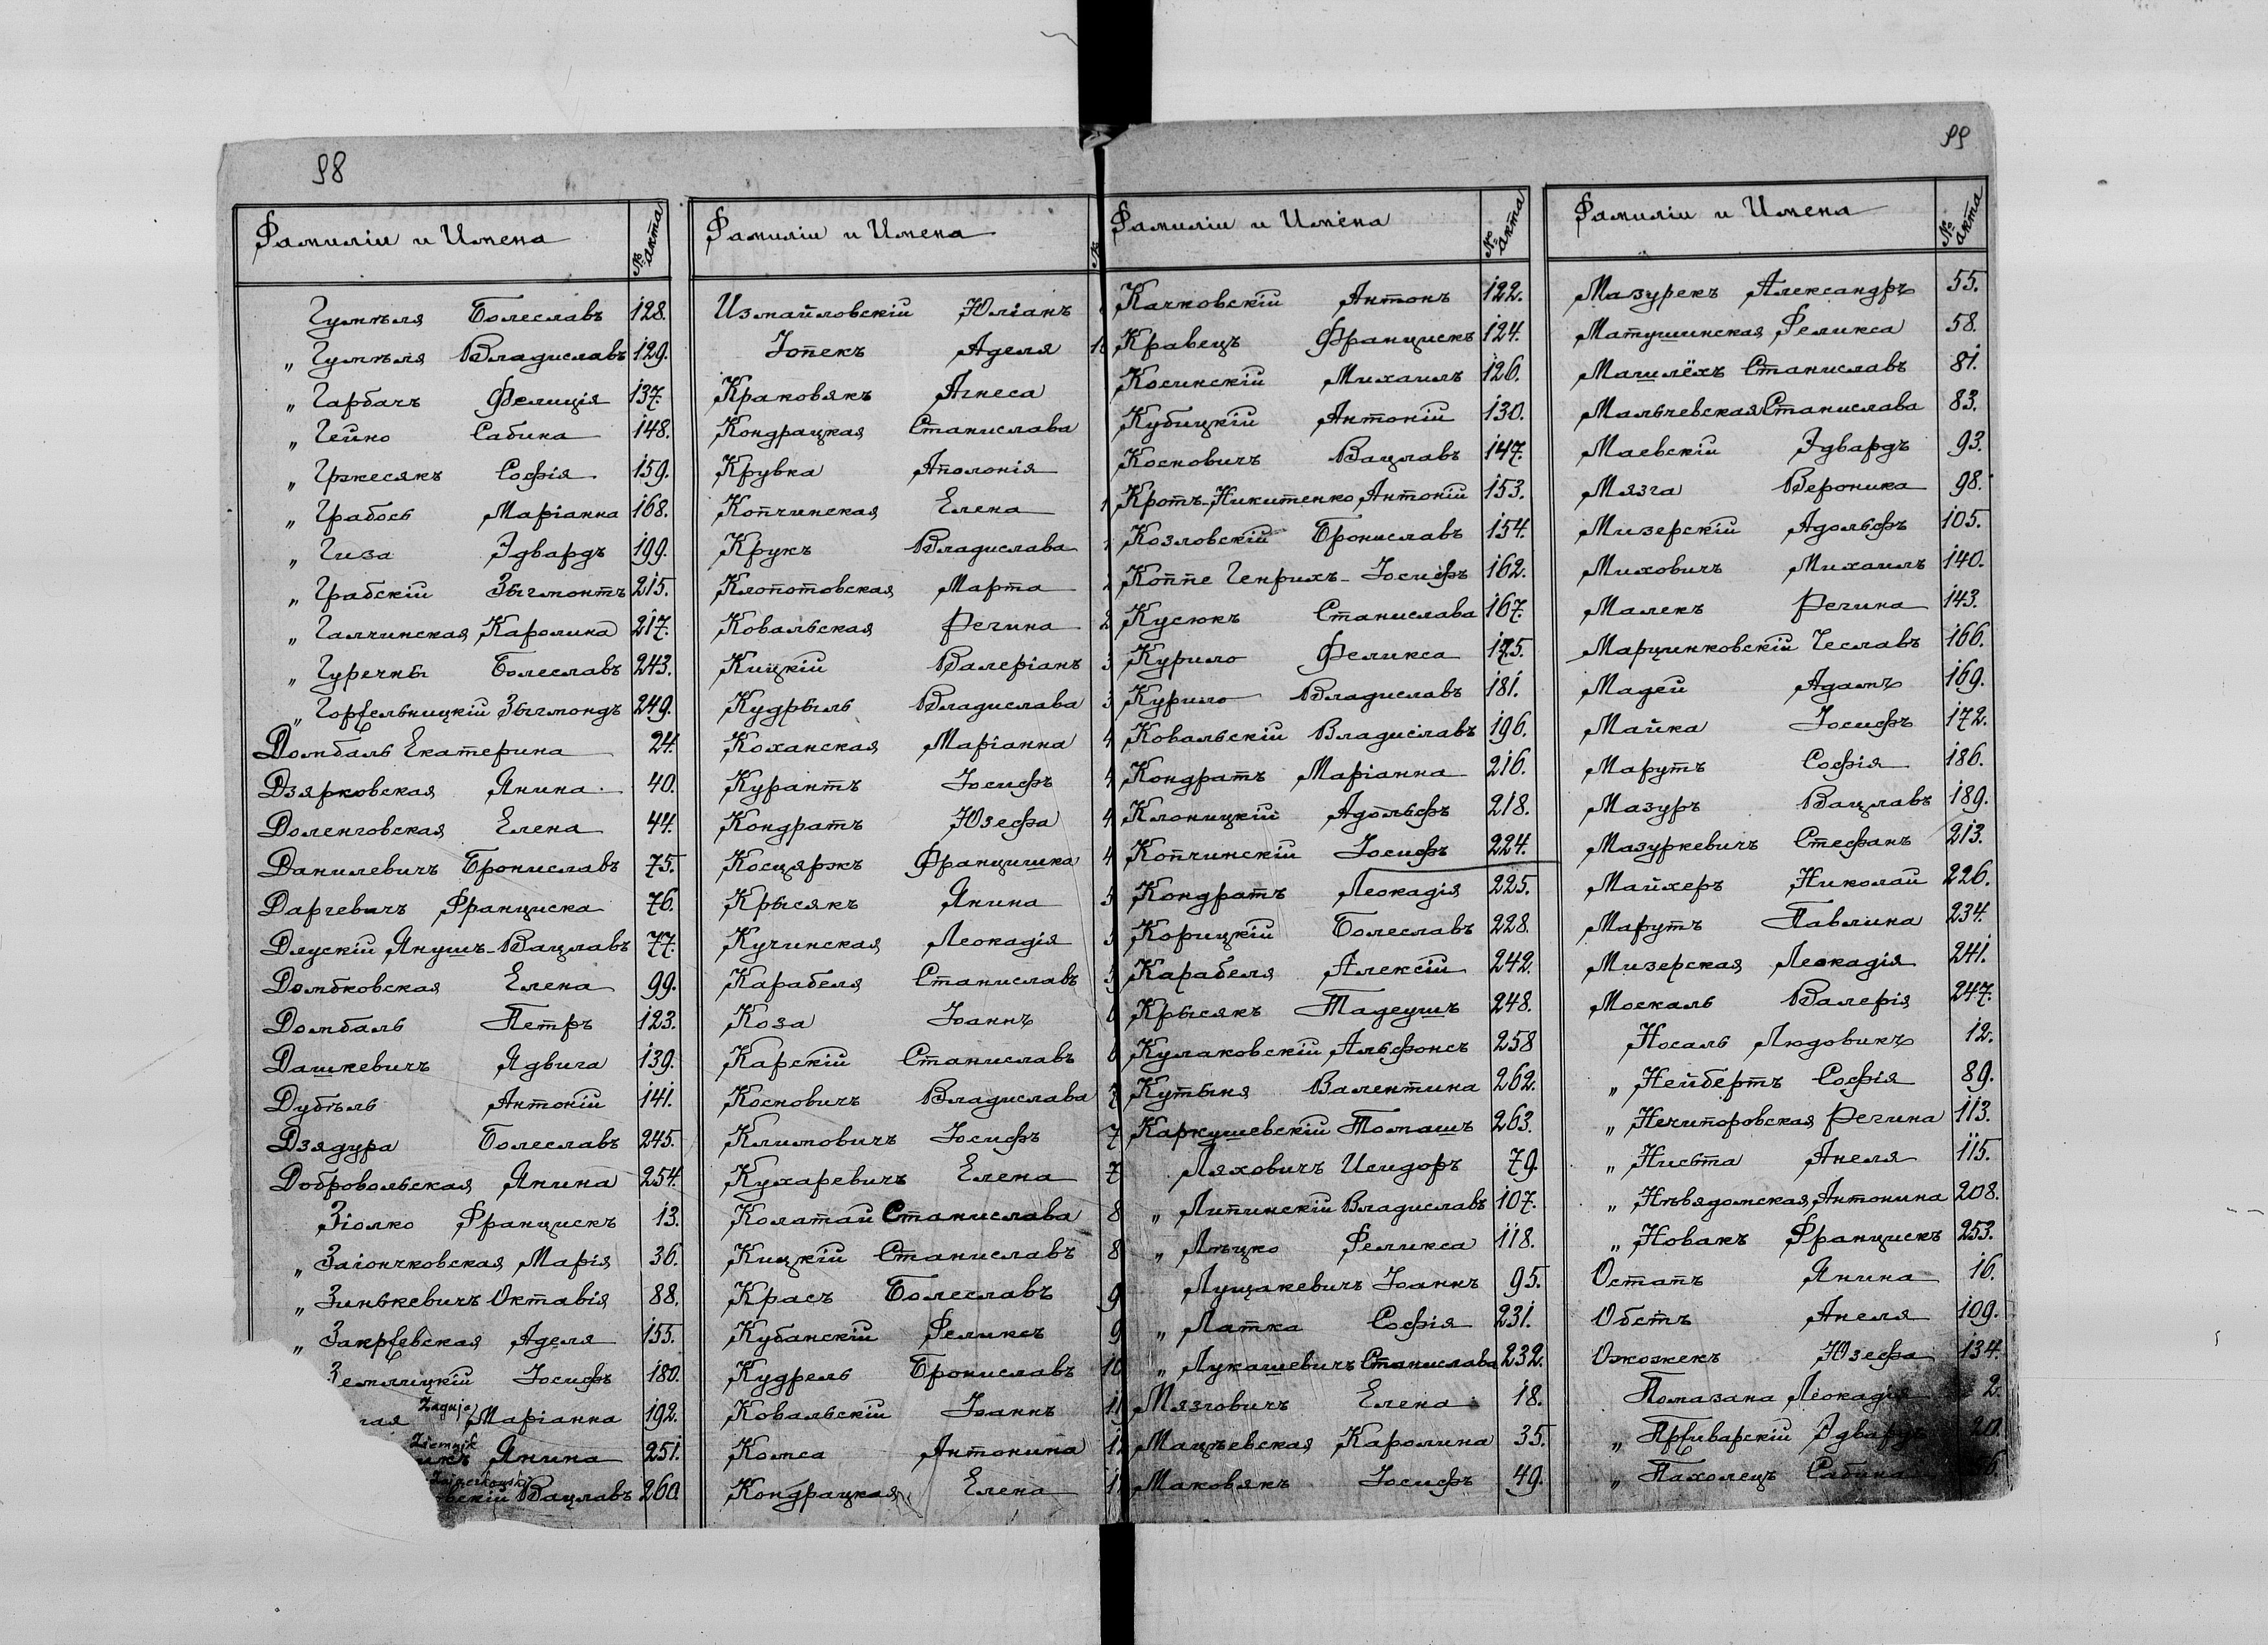 98
Фамиліи и Имена № акта
Гумѣля Болеславъ 128.
„ Гумѣля Владиславъ 129.
„ Гарбачъ Фелиція 137.
„ Гейно Сабина 148.
„ Гржесякъ Софія 159.
„ Грабось Маріанна 168.
„ Гиза Эдвардъ 199.
„ Грабскій Зыгмонтъ 215.
„ Галчинская Каролина 217.
„ Гуречны Болеславъ 243.
„ Зыгмондъ 249.
Домбаль Екатерина 24.
Дзярковская Янина 40.
Доленговская Елена 44.
Данилевичъ Брониславъ 75.
Даргевичъ Франциска 76.
Длускій Янушъ-Вацлавъ 77.
Домбковская Елена 99.
Домбаль Петръ 123.
Дашкевичъ Ядвига 139.
Дубѣль Антоній 141.
Дзядура Болеславъ 245.
Добровольская Янина 254.
Зіолко Францискъ 13.
„ Заіончковская Марія 36.
„ Зинькевичъ Октавія 88.
„ Закревская Аделя 155.
Землицкій Іосифъ 180.
гая Zagaja Маріанна 192.
икъ Ziemnik Янина 251.
вскій Вацлавъ 260
Фамиліи и Имена №
Измайловскій Юліанъ
Іопекъ Аделя 1
Краковякъ Агнеса
Кондрацкая Станислава
Крувка Аполонія
Копчинская Елена 1
Крукъ Владислава 1
Клопотовская Марта 2
Ковальская Регина 2
Кицкій Валеріанъ 3
Кудрыль Владислава 3
Коханская Маріанна 4
Курантъ Іосифъ 4
Кондратъ Юзефа 4
Косцяржъ Францишка 4
Крысякъ Янина 5
Кучинская Леокадія 5
Карабеля Станиславъ 5
Коза Іоаннъ 6
Карскій Станиславъ 6
Косновичъ Владислава 7
Климовичъ Іосифъ 7
Кухаревичъ Елена 7
Колатай Станислава 8
Кицкій Станиславъ 8
Красъ Болеславъ 9
Кубанскій Феликсъ 9
Кудрель Брониславъ 10
Ковальскій Іоаннъ 11
Комса Антонина 11
Кондрацкая Елена 11
Фамиліи и Имена № акта
Качковскій Антонъ 122.
Кравецъ Францискъ 124.
Косинскій Михаилъ 126.
Кубицкій Антоній 130.
Косновичъ Вацлавъ 147.
Кротъ-Никитенко Антоній 153.
Козловскій Брониславъ 154.
Коппе Генрихъ-Іосифъ 162.
Кусюкъ Станислава 167.
Курило Феликса 175.
Курило Владиславъ 181.
Ковальскій Владиславъ 196.
Кондратъ Маріанна 216.
Клоницкій Адольфъ 218.
Копчинскій Іосифъ 224.
Кондратъ Леокадія 225.
Корицкій Болеславъ 228.
Карабеля Алексій 242.
Крысякъ Тадеушъ 248.
Кулаковскій Альфонсъ 258
Кутыня Валентина 262.
Каркушевскій Томашъ 263.
Ляховичъ Исидоръ 79.
„ Липинскій Владиславъ 107.
„ Лѣцко Феликса 118.
Лущакевичъ Іоаннъ 95.
„ Латка Софія 231.
„ Лукашевичъ Станислава 232.
Мязговичъ Елена 18.
Мацѣевская Каролина 35.
Маковякъ Іосифъ 49.
99
Фамиліи и Имена № акта
Мазурекъ Александръ 55.
Матушинская Феликса 58.
Машлёхъ Станиславъ 81.
Мальчевская Станислава 83.
Маевскій Эдвардъ 93.
Мязга Вероника 98.
Мизерскій Адольфъ 105.
Миховичъ Михаилъ 140.
Малекъ Регина 143.
Марцинковскій Чеславъ 166.
Мадей Адамъ 169.
Майка Іосифъ 172.
Марутъ Софія 186.
Мазуръ Вацлавъ 189.
Мазуркевичъ Стефанъ 213.
Майхеръ Николай 226.
Марутъ Павлина 234.
Мизерская Леокадія 241.
Москаль Валерія 247.
Носаль Людовикъ 12.
„ Нейбертъ Софія 89.
„ Нечипоровская Регина 113.
„ Нисьта Анеля 115.
„ Нѣвядомская Антонина 208.
„ Новакъ Францискъ 253.
Остапъ Янина 16.
Обстъ Анеля 109.
Ожожекъ Юзефа 134.
Помазана Леокадія 2.
„ Эдвардъ 20.
„ Пахолецъ Сабина